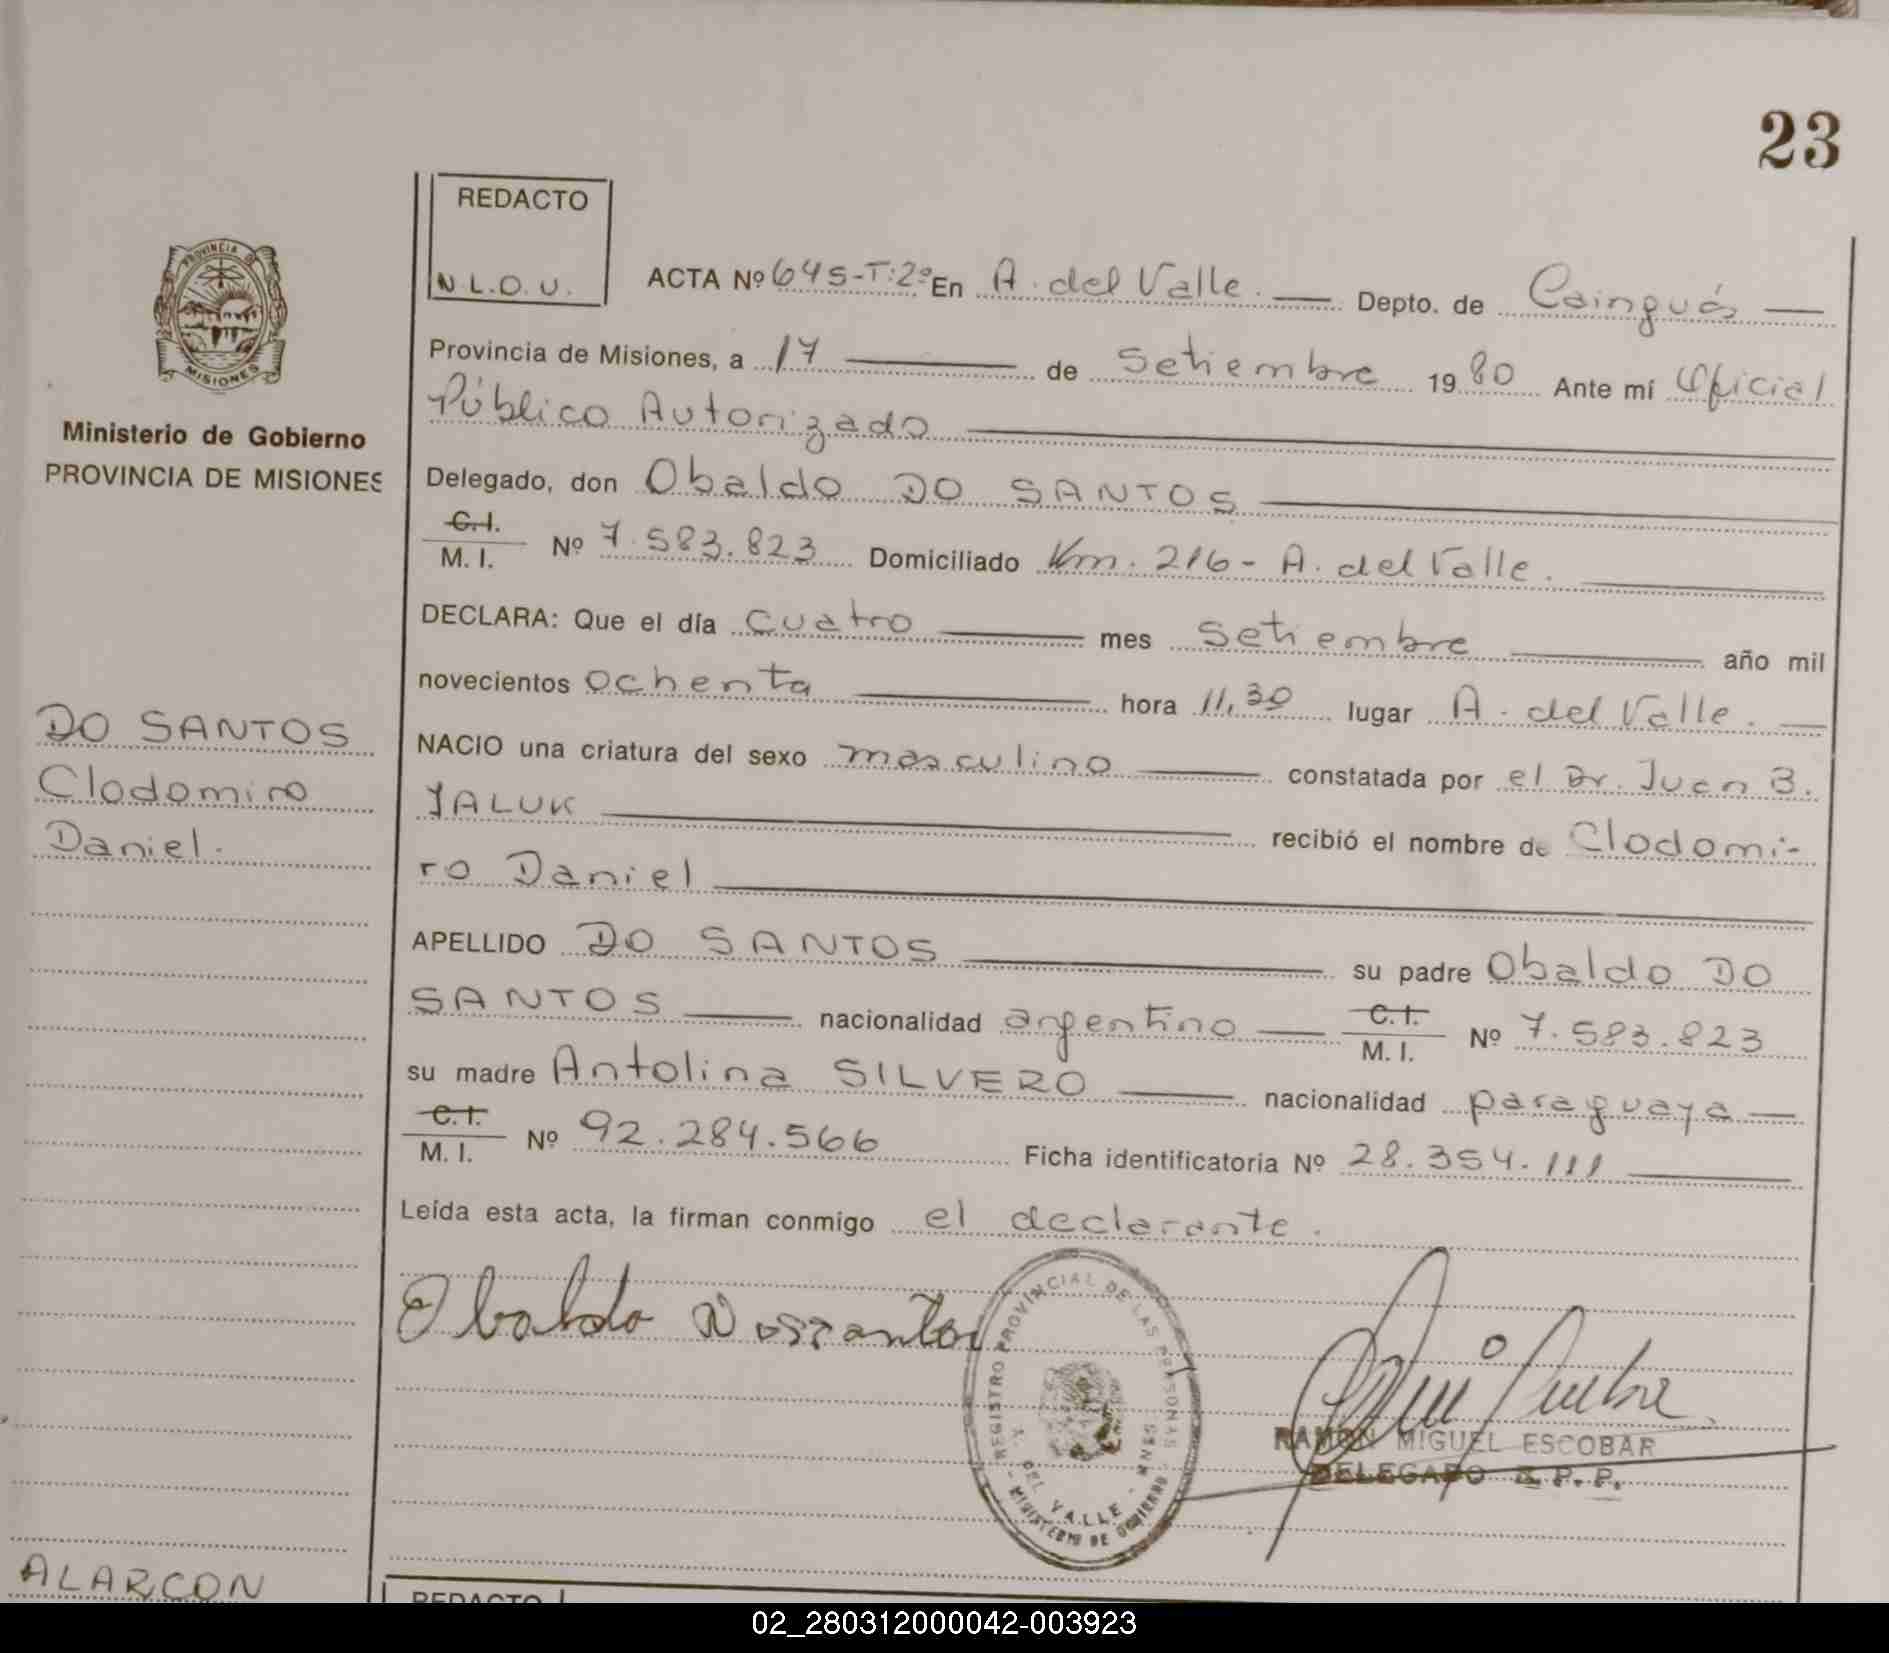 23
PROVINCIA DE
MISIONES
Ministerio de Gobierno
PROVINCIA DE MISIONES
DO SANTOS
Clodomiro
Daniel.
ALARCON
REDACTO
N.L.D.U.
ACTA Nº 645-T:2º En A. del Valle. Depto. de Cainguás
Provincia de Misiones, a 17 de Setiembre 1980 Ante mí Oficial
Público Autorizado
Delegado, don Obaldo DO SANTOS
C.I. M.I. Nº 7.583.823 Domiciliado Km. 216 - A. del Valle.
DECLARA: Que el día cuatro mes Setiembre año mil
novecientos ochenta hora 11,30 lugar A. del Valle.
NACIO una criatura del sexo masculino constatada por el Dr. Juan B.
JALUK recibió el nombre de Clodomi-
ro Daniel
APELLIDO DO SANTOS su padre Obaldo DO
SANTOS nacionalidad argentino C.I. M.I. Nº 7.583.823
su madre Antolina SILVERO nacionalidad paraguaya
C.I. M.I. Nº 92.284.566 Ficha identificatoria Nº 28.354.111
Leída esta acta, la firman conmigo el declarante.
Obaldo Dossantos
REGISTRO PROVINCIAL DE LAS PERSONAS
A. DEL VALLE - MNES
MINISTERIO DE GOBIERNO
RAMON MIGUEL ESCOBAR
DELEGADO R.P.P.
REDACTO
02_280312000042-003923